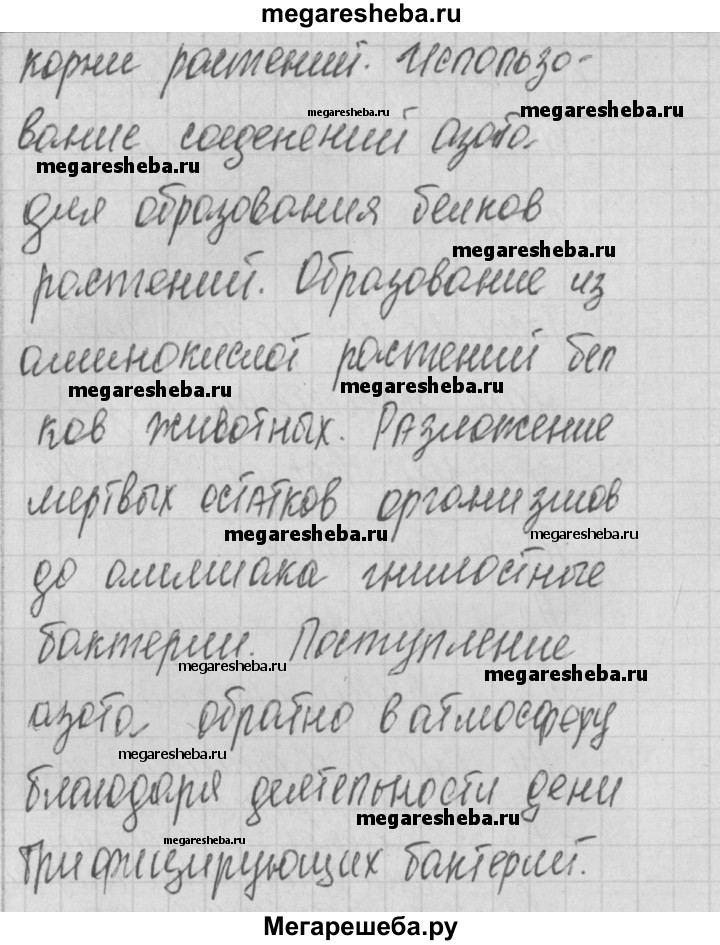 megaresheba.ru
корни растений. Использо-
megaresheba.ru
megaresheba.ru
вание соеденений азота
megaresheba.ru
для образования белков
megaresheba.ru
растений. Образование из
аминокислот растений бел
megaresheba.ru
megaresheba.ru
ков животных. Разложение
мертвых остатков организмов
megaresheba.ru
megaresheba.ru
до аммиака гнилостные
бактерии. Поступление
megaresheba.ru
megaresheba.ru
азота обратно в атмосферу
megaresheba.ru
благодаря деятельности дени
megaresheba.ru
megaresheba.ru
трифицирующих бактерий.
Мегарешеба.ру